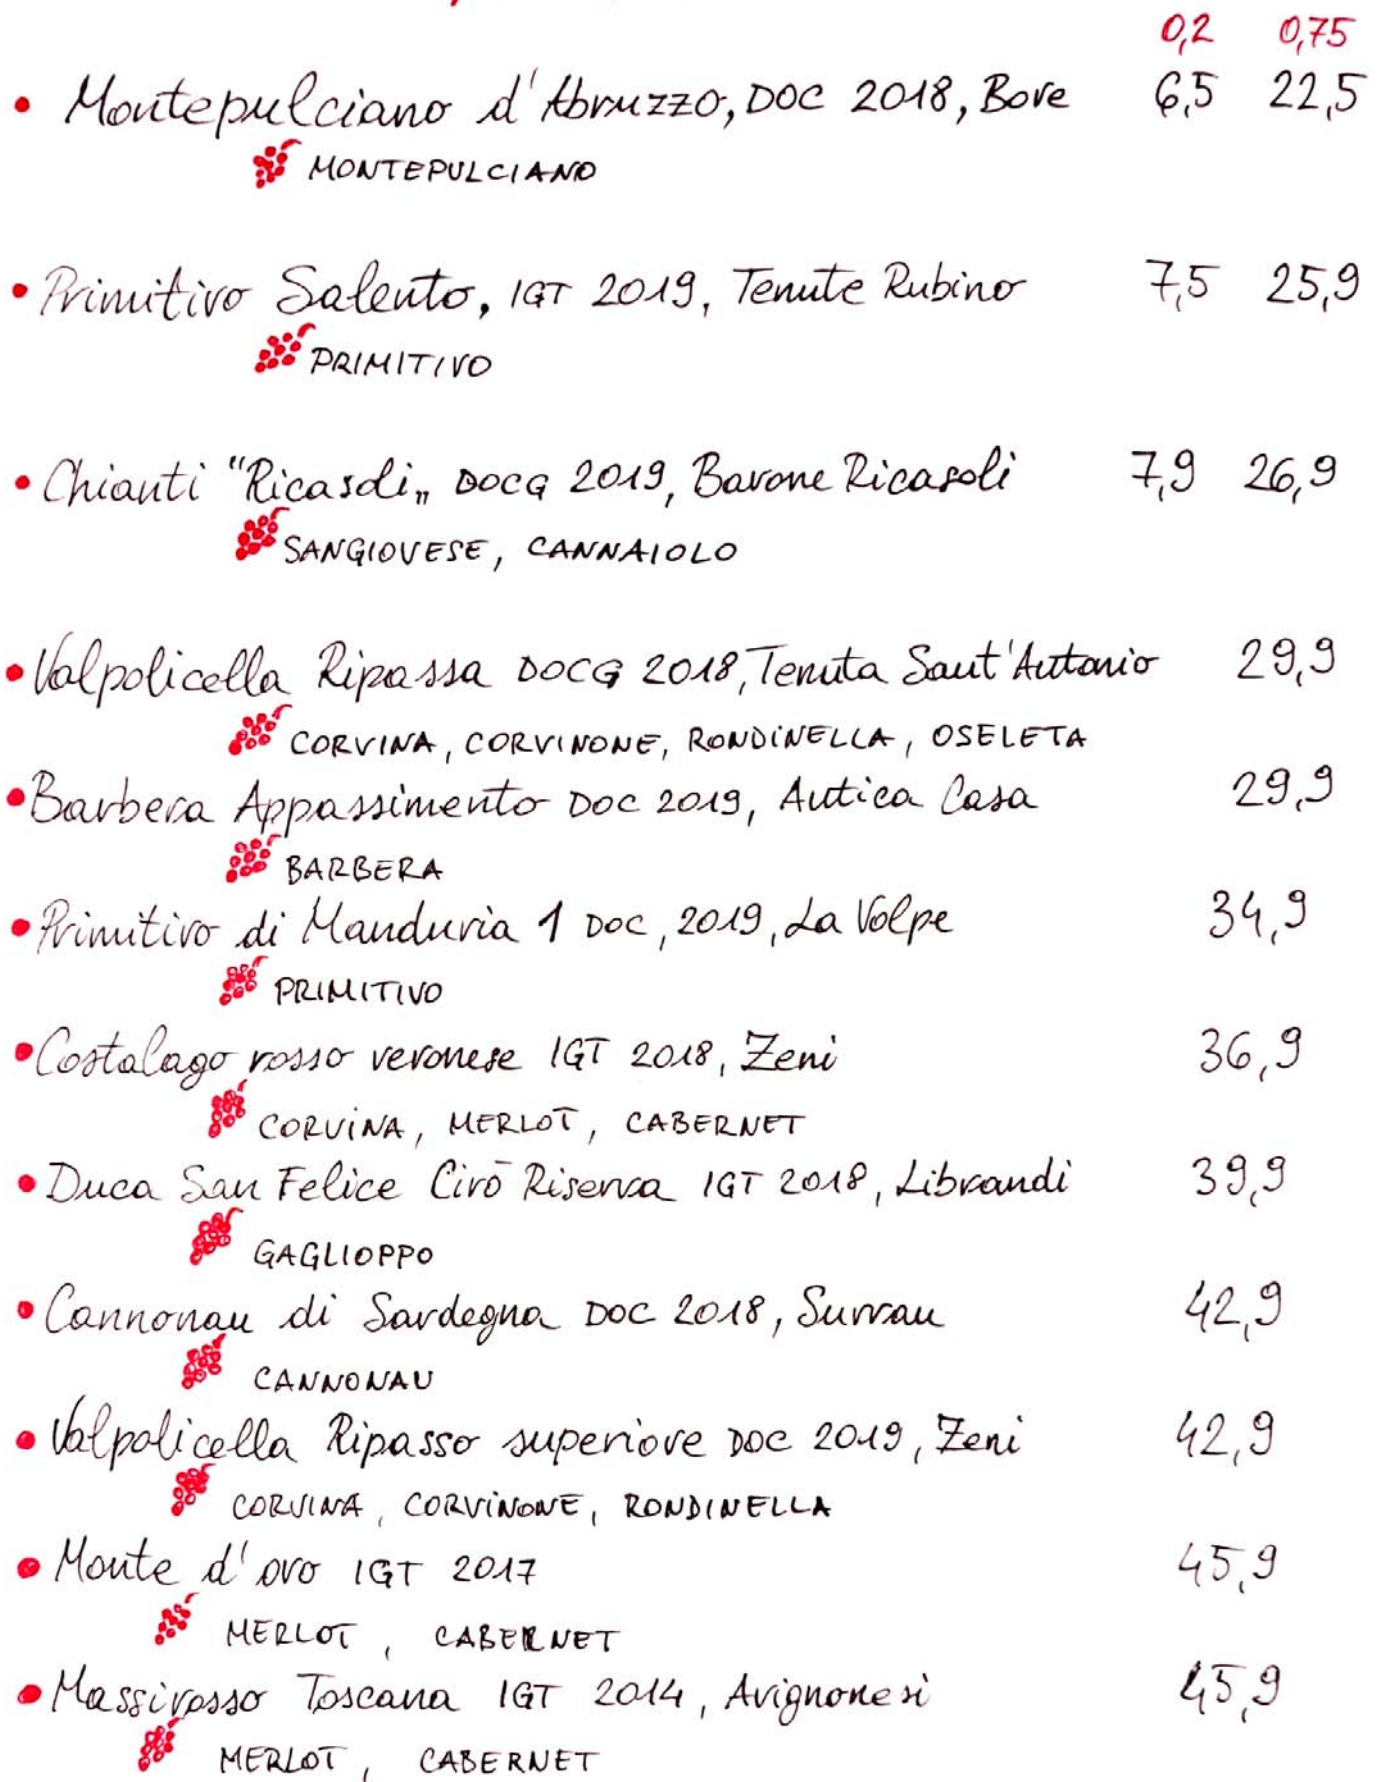 0,2 0,75
• Montepulciano d'Abruzzo, DOC 2018, Bove 6,5 22,5
MONTEPULCIANO
• Primitivo Salento, IGT 2019, Tenute Rubino 7,5 25,9
PRIMITIVO
• Chianti "Ricasoli„ DOCG 2019, Barone Ricasoli 7,9 26,9
SANGIOVESE, CANNAIOLO
• Valpolicella Ripassa DOCG 2018, Tenuta Sant'Antonio 29,9
CORVINA, CORVINONE, RONDINELLA, OSELETA
• Barbera Appassimento DOC 2019, Antica Casa 29,9
BARBERA
• Primitivo di Manduria 1 DOC, 2019, La Volpe 34,9
PRIMITIVO
• Costalago rosso veronese IGT 2018, Zeni 36,9
CORVINA, MERLOT, CABERNET
• Duca San Felice Cirò Riserva IGT 2018, Librandi 39,9
GAGLIOPPO
• Cannonau di Sardegna DOC 2018, Surrau 42,9
CANNONAU
• Valpolicella Ripasso superiore DOC 2019, Zeni 42,9
CORVINA, CORVINONE, RONDINELLA
• Monte d'oro IGT 2017 45,9
MERLOT, CABERNET
• Massirosso Toscana IGT 2014, Avignonesi 45,9
MERLOT, CABERNET